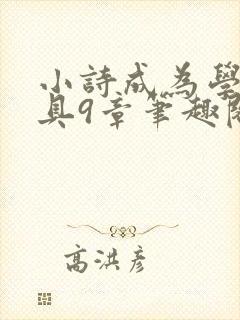 小詩成為學
具9章筆趣
高洪彦